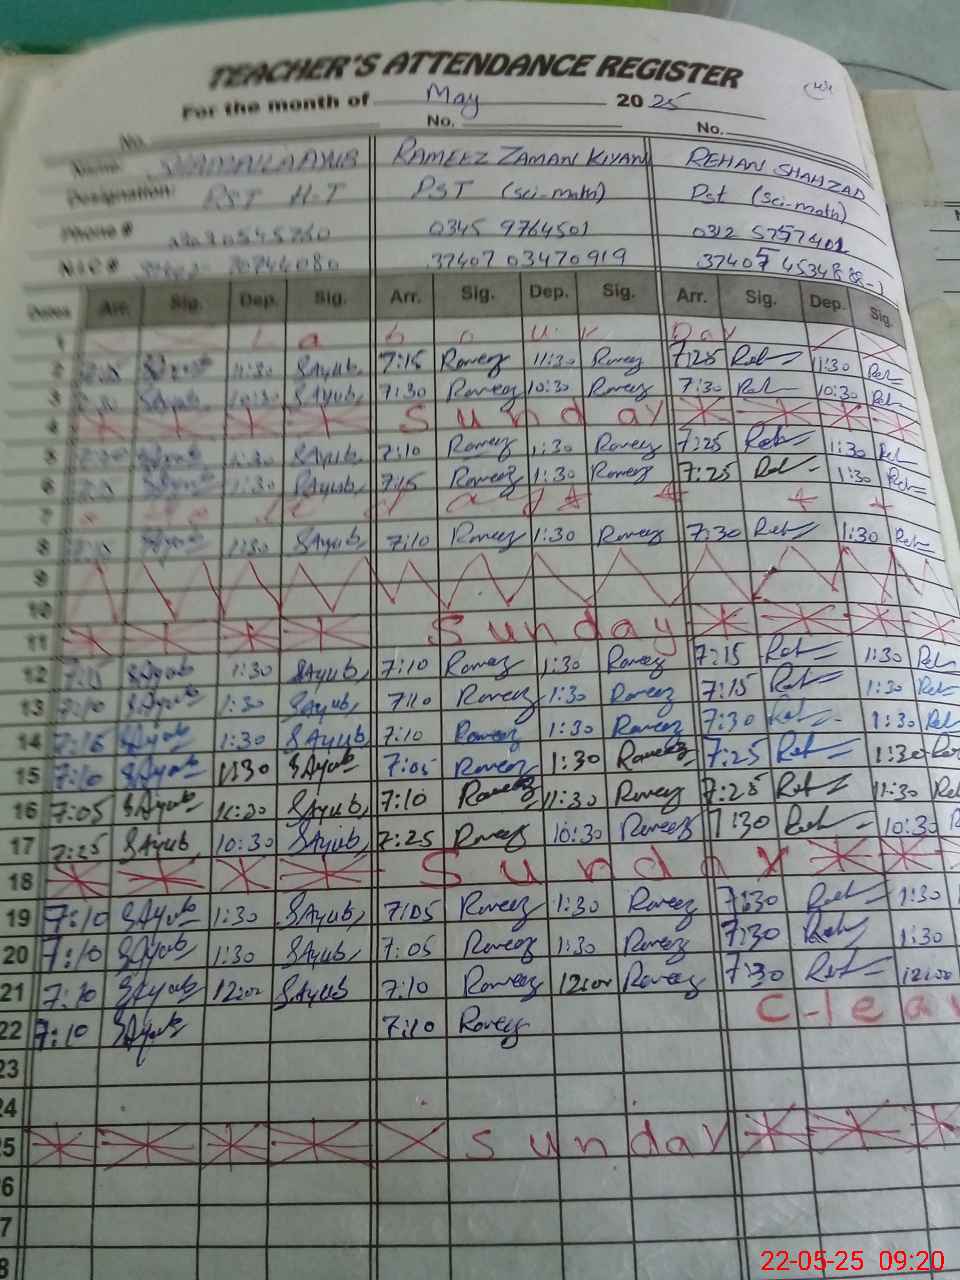 TEACHER'S ATTENDANCE REGISTER
For the month of May 2025
No. No. No.
Name: RAMEEZ ZAMAN KIYANI REHAN SHAHZAD
Designation: PST H-T PST (sci-math) Pst (sci-math)
Phone # 0345 9764501 0312 5757401
N.I.C # 37407 03470919 37405 4534888-1
Dates Arr. Sig. Dep. Sig. Arr. Sig. Dep. Sig. Arr. Sig. Dep. Sig.
1 L a b o u r Day
2 11:30 SAyub 7:15 Rameez 11:30 Rameez 7:25 Reh 11:30 Reh
3 10:30 SAyub 7:30 Rameez 10:30 Rameez 7:30 Reh 10:30 Reh
4 Sunday
5 1:30 SAyub 7:10 Rameez 1:30 Rameez 7:25 Reh 1:30 Reh
6 1:30 SAyub 7:15 Rameez 1:30 Rameez 7:25 Reh 1:30 Reh
7
8 1:30 SAyub 7:10 Rameez 1:30 Rameez 7:30 Reh 1:30 Reh
9
10
11 Sunday
12 7:15 SAyub 1:30 SAyub 7:10 Rameez 1:30 Rameez 7:15 Reh 1:30 Reh
13 7:10 SAyub 1:30 SAyub 7:10 Rameez 1:30 Rameez 7:15 Reh 1:30 Reh
14 7:15 SAyub 1:30 SAyub 7:10 Rameez 1:30 Rameez 7:30 Reh 1:30 Reh
15 7:10 SAyub 1:30 SAyub 7:05 Rameez 1:30 Rameez 7:25 Reh 1:30
16 7:05 SAyub 11:30 SAyub 7:10 Rameez 11:30 Rameez 7:25 Reh 11:30
17 7:25 SAyub 10:30 SAyub 7:25 Rameez 10:30 Rameez 7:30 Reh 10:30
18 Sunday
19 7:10 SAyub 1:30 SAyub 7:05 Rameez 1:30 Rameez 7:30 Reh 1:30
20 7:10 SAyub 1:30 SAyub 7:05 Rameez 1:30 Rameez 7:30 Reh 1:30
21 7:10 SAyub 12:00 SAyub 7:10 Rameez 12:00 Rameez 7:30 Reh 12:00
22 7:10 SAyub 7:10 Rameez
23
24
25 Sunday
22-05-25 09:20